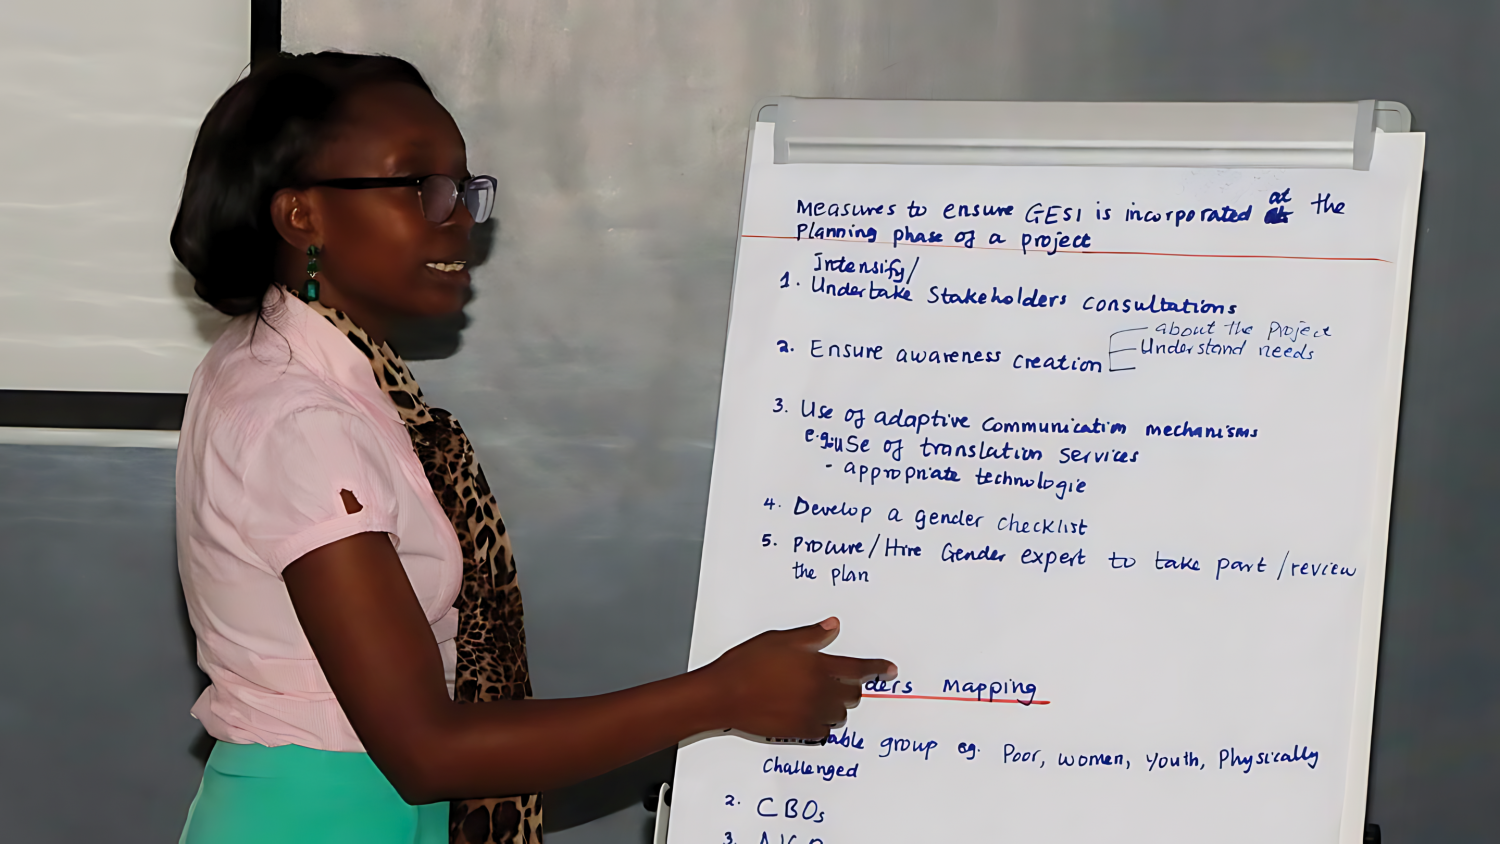 Measures to ensure GESI is incorporated at the
Planning phase of a project
Intensify/
1. Undertake Stakeholders consultations
about the Project
2. Ensure awareness creation Understand needs
3. Use of adaptive communication mechanisms
e.g. use of translation services
- appropriate technologie
4. Develop a gender checklist
5. Procure/Hire Gender expert to take part/review
the plan
Mapping
group eg. Poor, women, youth, Physically
Challenged
2. CBOs
3.